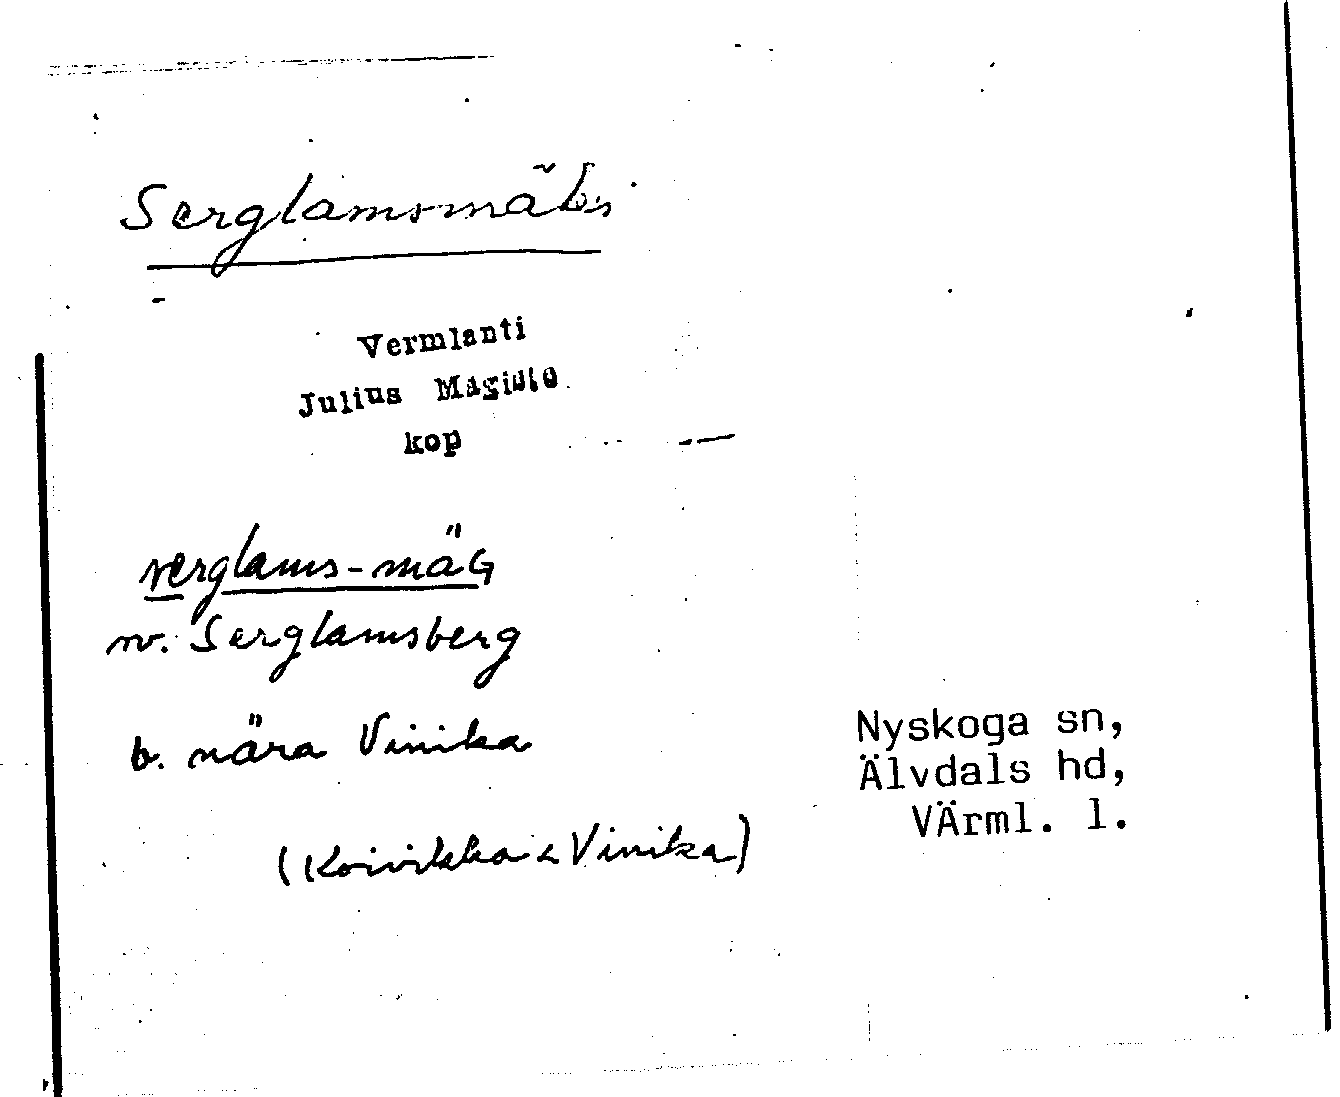 Serglamsmäki
Vermlanti
Julius Mägiste
kop
serglams-mäG
rv. Serglamsberg
b. nära Vinika
(Koivikka & Vinika)
Nyskoga sn,
Älvdals hd,
VÄrml. l.